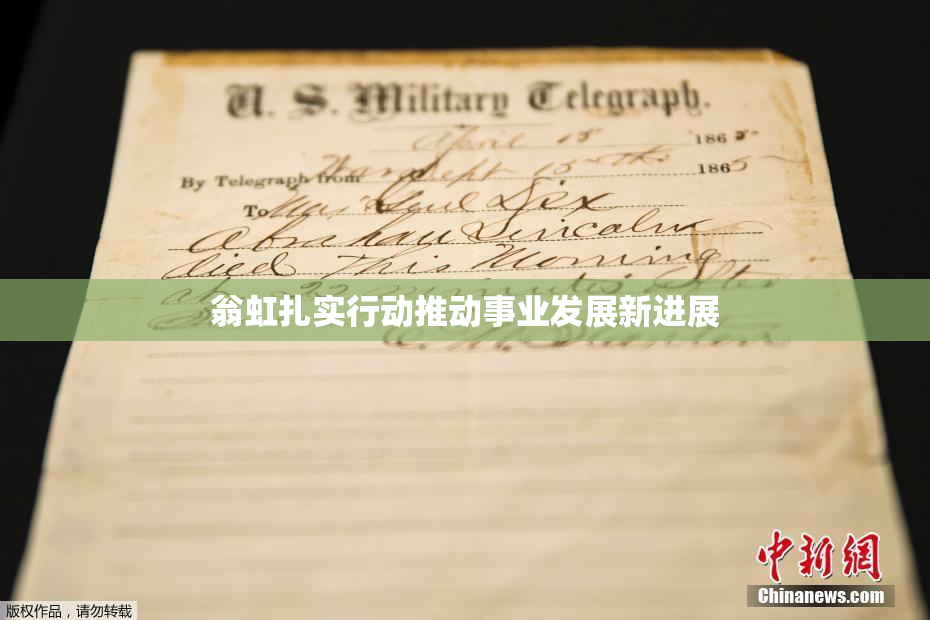 U. S. Military Telegraph.
April 15 1865
By Telegraph from War Dept 15th 1865
To Maj Genl Dix
Abraham Lincoln
died This Morning
at 22 minutes after
翁虹扎实行动推动事业发展新进展
中新网
Chinanews.com
版权作品，请勿转载